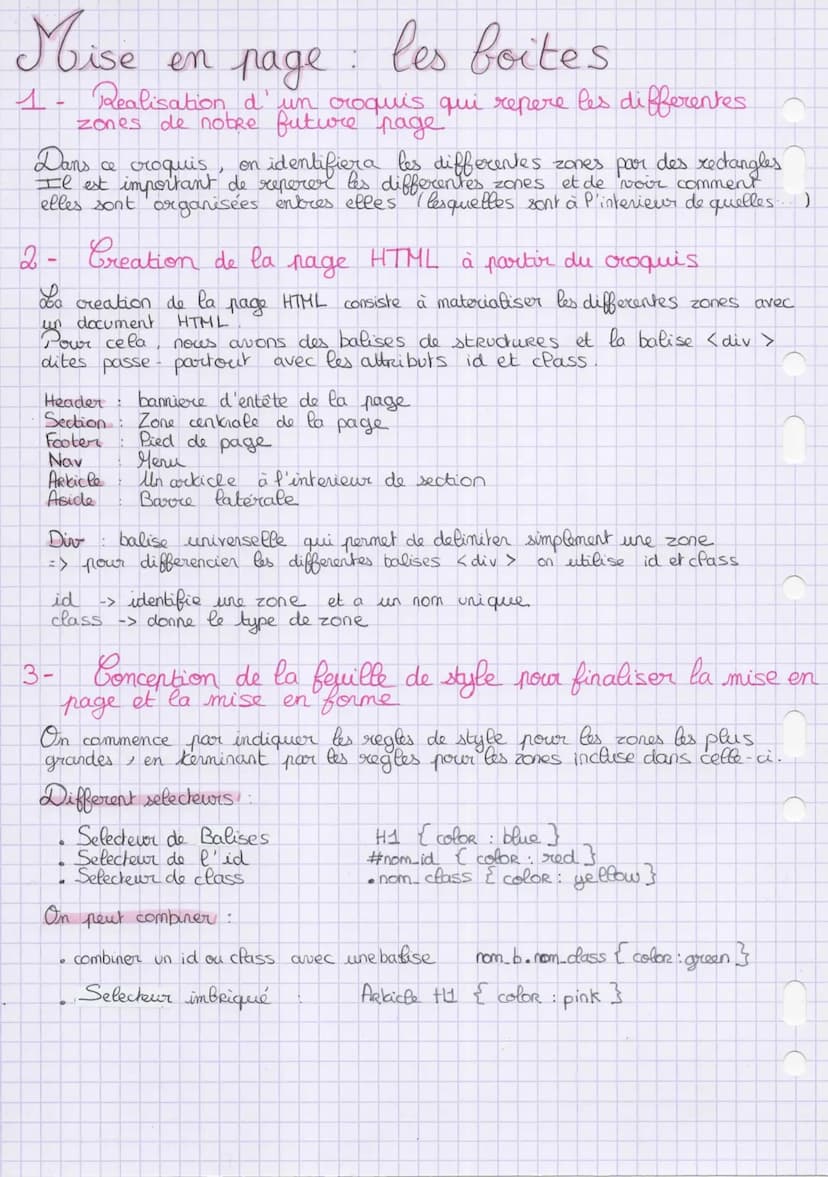 Mise en page : les boites
1 - Realisation d'un croquis qui repere les differentes
zones de notre future page
Dans ce croquis, on identifiera les differentes zones par des rectangles
Il est important de reperer les differentes zones et de voir comment
elles sont organisées entres elles (lesquelles sont à l'interieur de quelles...)
2 - Creation de la page HTML à partir du croquis
La creation de la page HTML consiste à materialiser les differentes zones avec
un document HTML.
Pour cela, nous avons des balises de structures et la balise <div>
dites passe-partout avec les attributs id et class.
Header : banniere d'entête de la page
Section : Zone centrale de la page
Footer : Pied de page
Nav : Menu
Article : Un article à l'interieur de section
Aside : Barre latérale
Div : balise universelle qui permet de delimiter simplement une zone
=> pour differencier les differentes balises <div> on utilise id et class
id -> identifie une zone et a un nom unique
class -> donne le type de zone
3 - Conception de la feuille de style pour finaliser la mise en
page et la mise en forme
On commence par indiquer les regles de style pour les zones les plus
grandes, en terminant par les regles pour les zones incluse dans celle-ci.
Different selecteurs :
• Selecteur de Balises H1 { color : blue }
• Selecteur de l'id #nom_id { color : red }
• Selecteur de class .nom_class { color : yellow }
On peut combiner :
• combiner un id ou class avec une balise nom_b.nom_class { color : green }
• Selecteur imbriqué : Article H1 { color : pink }